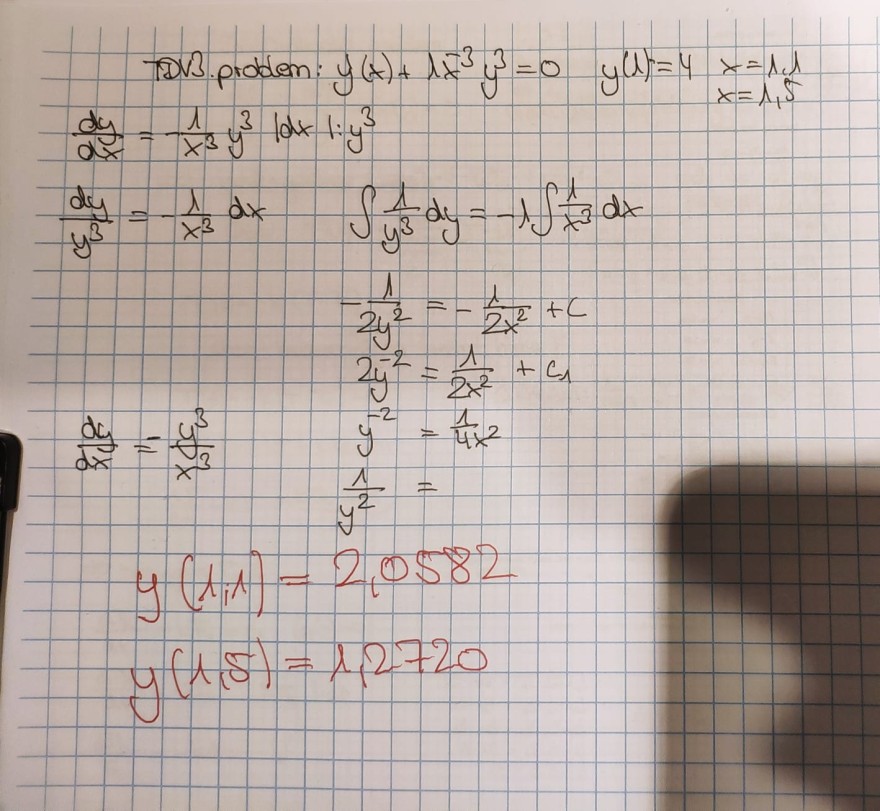 TDV3. problem: y(x) + 1x⁻³y³ = 0 y(1) = 4 x = 1,1
x = 1,5
dy/dx = -1/x³ y³ |dx |:y³
dy/y³ = -1/x³ dx ∫ 1/y³ dy = -1 ∫ 1/x³ dx
-1/2y² = -1/2x² + C
2y⁻² = 1/2x² + C₁
dy/dx = -y³/x³ y⁻² = 1/4x²
1/y² =
y(1,1) = 2,0582
y(1,5) = 1,2720